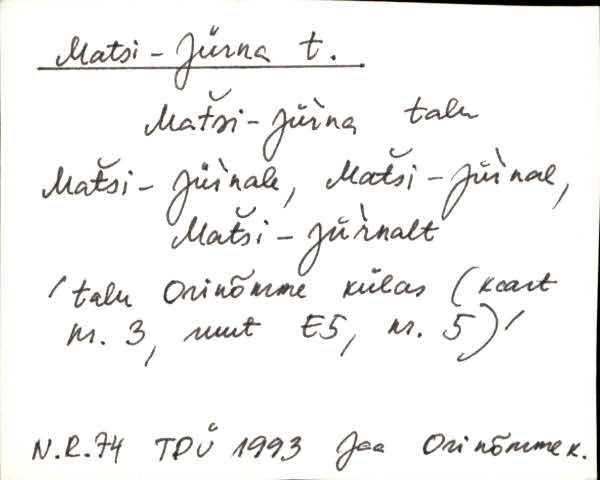 Matsi-Jürna t.
Matši-Jür̀na talu
Matši-Jür̀nale, Matši-Jür̀nal,
Matši-Jür̀nalt
'talu Orinõmme külas (kaart
nr. 3, ruut E5, nr. 5)'
N.R.74 TPÜ 1993 Jaa Orinõmme k.